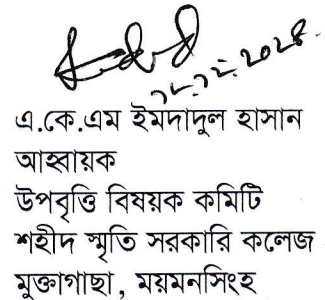 এ.কে.এম ইমদাদুল হাসান
আহ্বায়ক
উপবৃত্তি বিষয়ক কমিটি
শহীদ স্মৃতি সরকারি কলেজ
মুক্তাগাছা, ময়মনসিংহ